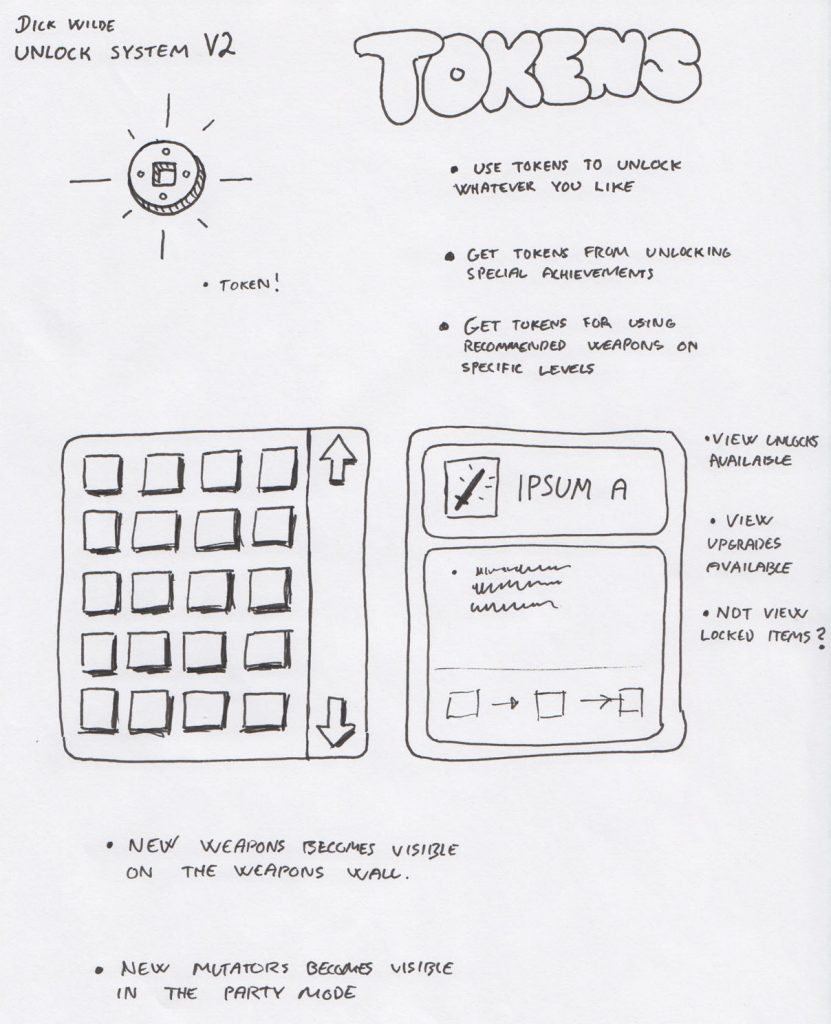 DICK WILDE
UNLOCK SYSTEM V2
TOKENS
• USE TOKENS TO UNLOCK
WHATEVER YOU LIKE
• GET TOKENS FROM UNLOCKING
SPECIAL ACHIEVEMENTS
• TOKEN!
• GET TOKENS FOR USING
RECOMMENDED WEAPONS ON
SPECIFIC LEVELS
IPSUM A
• VIEW UNLOCKS
AVAILABLE
• VIEW
UPGRADES
AVAILABLE
• NOT VIEW
LOCKED ITEMS?
• NEW WEAPONS BECOMES VISIBLE
ON THE WEAPONS WALL.
• NEW MUTATORS BECOMES VISIBLE
IN THE PARTY MODE